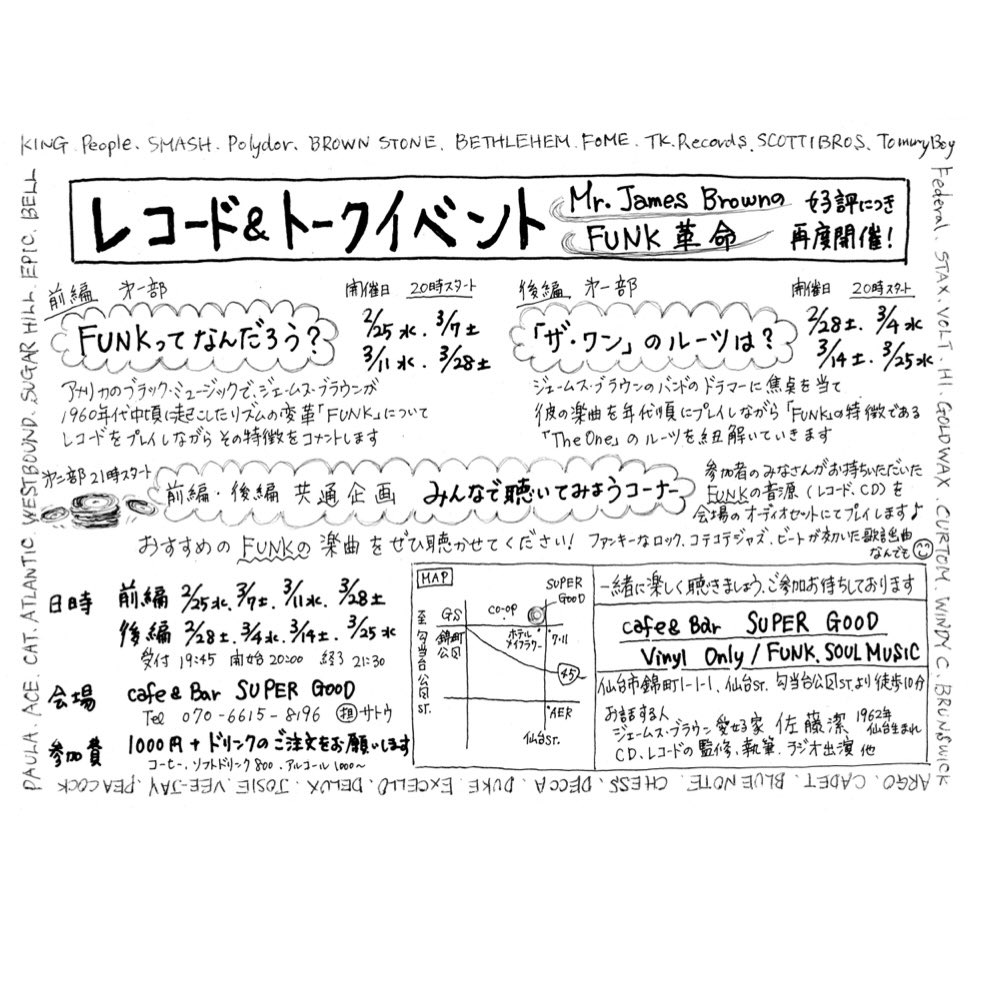 KING. People. SMASH. Polydor. BROWN STONE. BETHLEHEM. FOME. TK.Records. SCOTTIBROS. TommyBoy
Federal. STAX. VOLT. HI. GOLDWAX. CURTOM. WINDY C. BRUNSWICK
ARGO. CADET. BLUE NOTE. CHESS. DECCA. DUKE. EXCELLO. DELUX. JOSIE. VEE-JAY. PEACOCK
PAULA. ACE. CAT. ATLANTIC. WESTBOUND. SUGAR HILL. EPIC. BELL
レコード&トークイベント
Mr. James Brownの
FUNK 革命
好評につき
再度開催!
前編 第一部
開催日 20時スタート
FUNKってなんだろう?
2/25水. 3/7土
3/11水. 3/28土
アメリカのブラック・ミュージックで、ジェームス・ブラウンが
1960年代中頃に起こしたリズムの変革「FUNK」について
レコードをプレイしながら その特徴をコメントします
後編 第一部
開催日 20時スタート
「ザ・ワン」のルーツは?
2/28土. 3/4水
3/14土. 3/25水
ジェームス・ブラウンのバンドのドラマーに焦点を当て
彼の楽曲を年代順にプレイしながら「FUNK」の特徴である
「The One」のルーツを紐解いていきます
第二部 21時スタート
前編・後編 共通企画 みんなで聴いてみようコーナー
参加者のみなさんがお持ちいただいた
FUNKの音源(レコード、CD)を
会場のオーディオセットにてプレイします♪
おすすめのFUNKの楽曲をぜひ聴かせてください! ファンキーなロック、コテコテジャズ、ビートが効いた歌謡曲
なんでも
日時 前編 2/25水. 3/7土. 3/11水. 3/28土
後編 2/28土. 3/4水. 3/14土. 3/25水
受付 19:45 開始 20:00 終了 21:30
会場 cafe & Bar SUPER GOOD
Tel 070-6615-8196 担 サトウ
参加費 1000円+ドリンクのご注文をお願いします
コーヒー、ソフトドリンク 800. アルコール 1000〜
MAP
SUPER
GOOD
GS
co-op
至勾当台公園ST.
錦町
公園
ホテル
メイフラワー
7-11
45
AER
仙台ST.
一緒に楽しく聴きましょう、ご参加お待ちしております
cafe & Bar SUPER GOOD
Vinyl Only / FUNK. SOUL MUSIC
仙台市錦町1-1-1、仙台ST. 勾当台公園ST.より徒歩10分
お話する人
ジェームス・ブラウン愛好家 佐藤潔 1962年
仙台生まれ
CD、レコードの監修、執筆、ラジオ出演 他